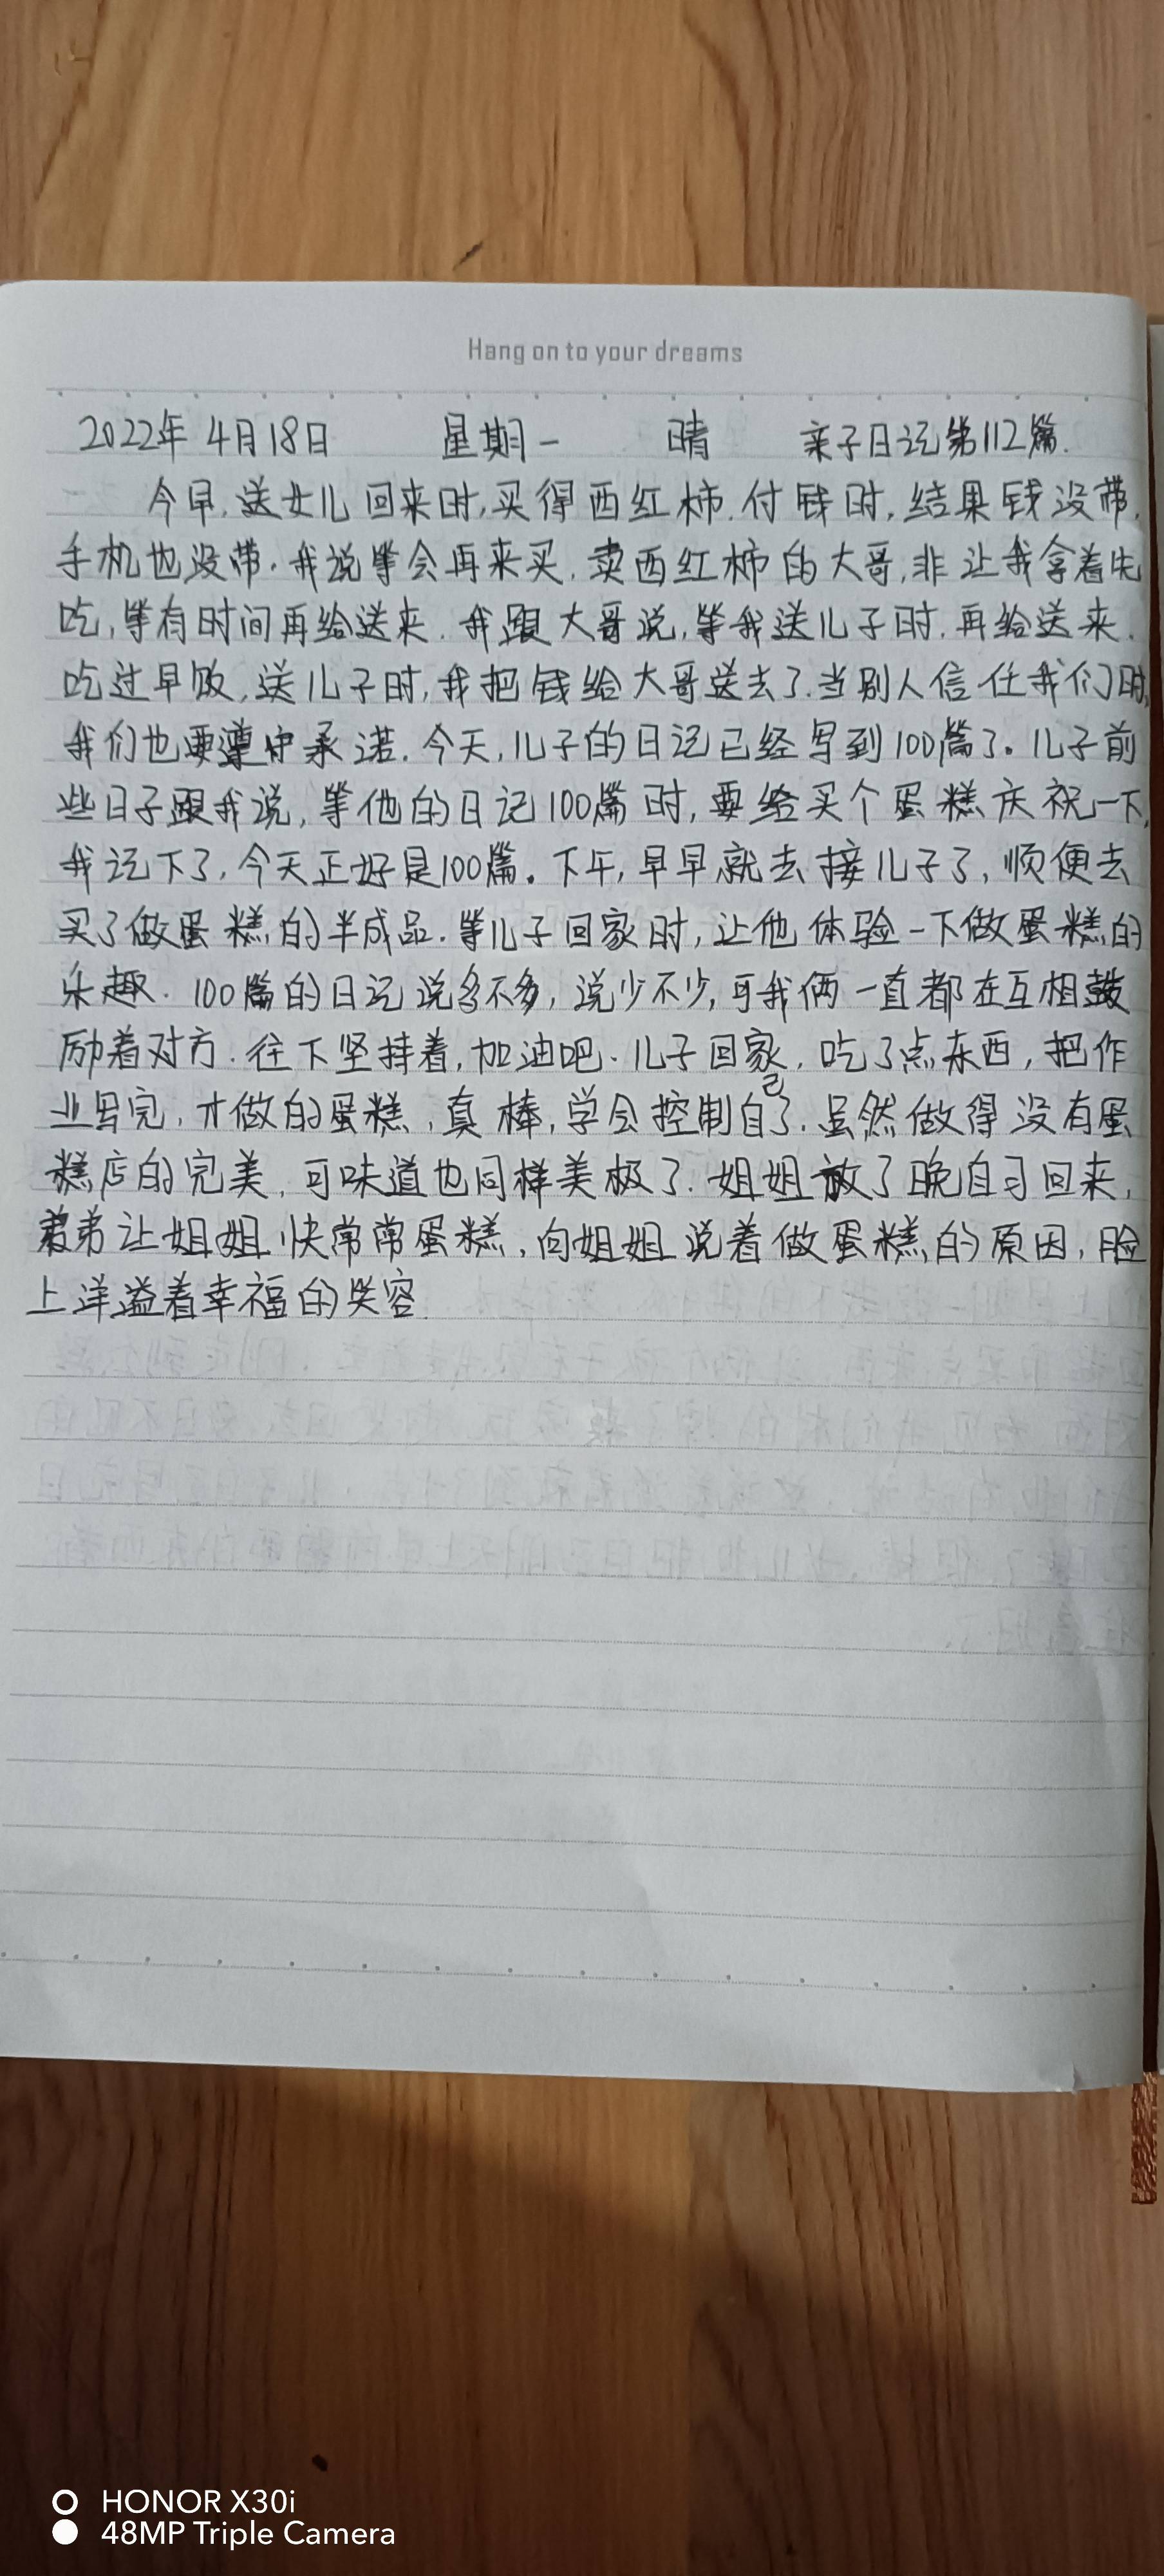 Hang on to your dreams
2022年4月18日 星期一 晴 亲子日记第112篇.
今早,送女儿回来时,买得西红柿.付钱时,结果钱没带,
手机也没带.我说等会再来买,卖西红柿的大哥,非让我拿着先
吃,等有时间再给送来.我跟大哥说,等我送儿子时,再给送来.
吃过早饭,送儿子时,我把钱给大哥送去了.当别人信任我们时,
我们也要遵守承诺.今天,儿子的日记已经写到100篇了。儿子前
些日子跟我说,等他的日记100篇时,要给买个蛋糕庆祝一下,
我记下了,今天正好是100篇。下午,早早就去接儿子了,顺便去
买了做蛋糕的半成品.等儿子回家时,让他体验一下做蛋糕的
乐趣.100篇的日记说多不多,说少不少,可我俩一直都在互相鼓
励着对方.往下坚持着,加油吧.儿子回家,吃了点东西,把作
业写完,才做的蛋糕,真棒,学会控制自己了.虽然做得没有蛋
糕店的完美,可味道也同样美极了.姐姐放了晚自习回来,
弟弟让姐姐快常常蛋糕,向姐姐说着做蛋糕的原因,脸
上洋溢着幸福的笑容.
HONOR X30i
48MP Triple Camera